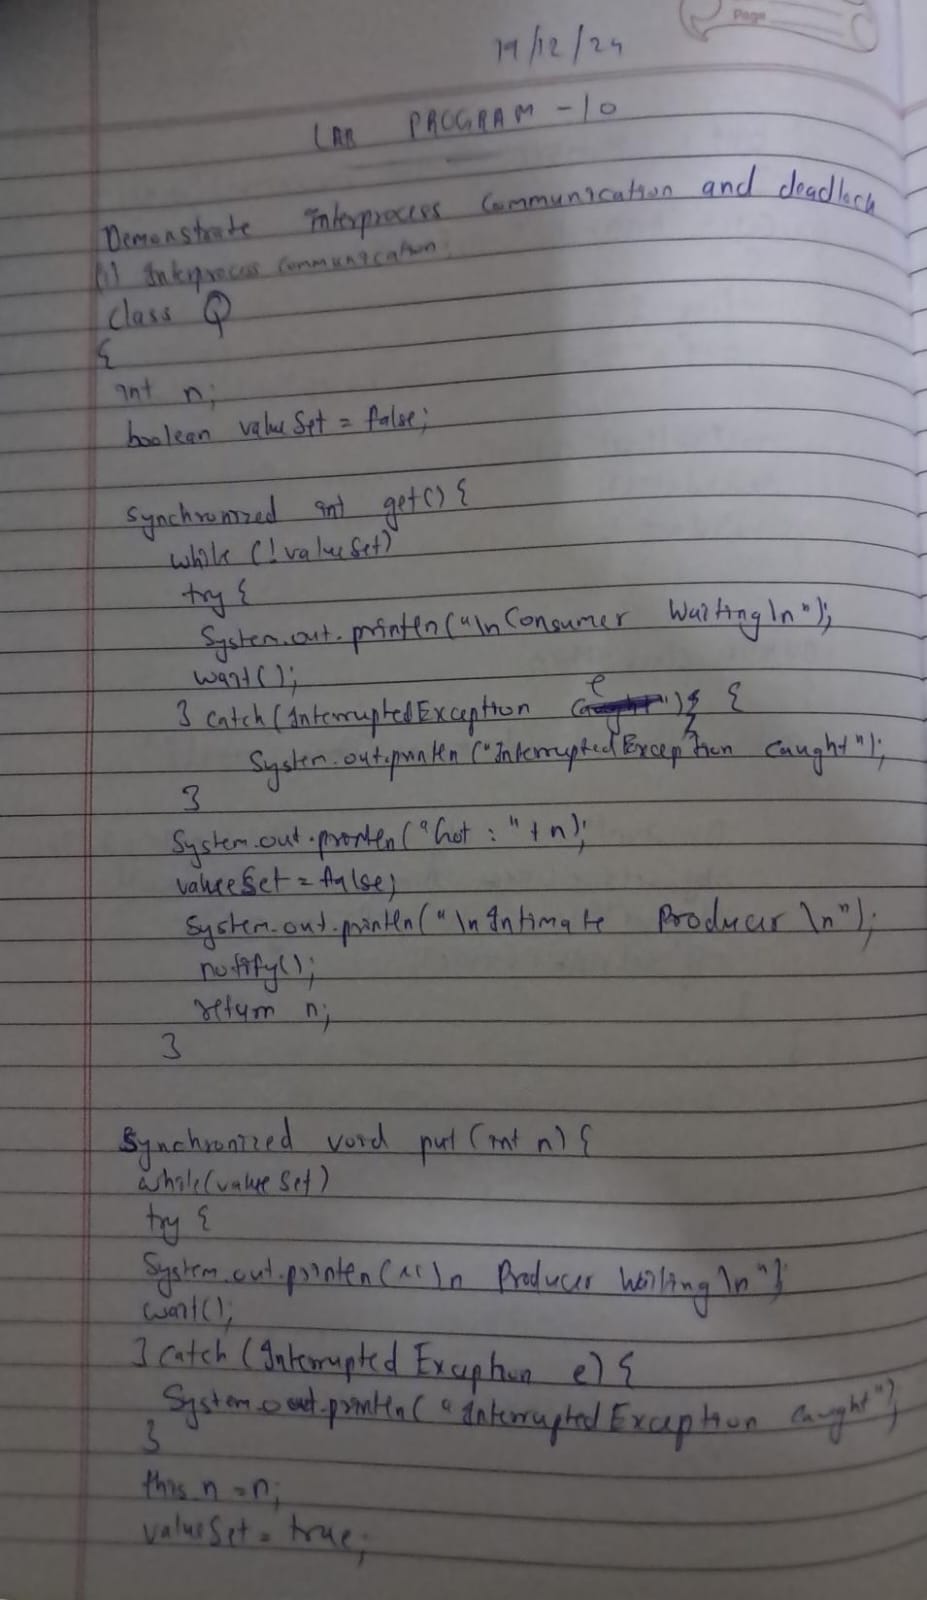 Page
19/12/24
LAB PROGRAM - 10
Demonstrate Interprocess Communication and deadlock
(i) Interprocess Communication
class Q
{
int n;
boolean valueSet = false;
Synchronized int get() {
while (!valueSet)
try {
System.out.println("\nConsumer Waiting\n");
wait();
} catch (InterruptedException e) {
System.out.println("InterruptedException caught");
}
System.out.println("Got : " + n);
valueSet = false;
System.out.println("\nIntimate Producer \n");
notify();
return n;
}
Synchronized void put (int n) {
while(valueSet)
try {
System.out.println("\n Producer Waiting \n");
wait();
} catch (Interrupted Exception e) {
System.out.println("InterruptedException caught");
}
this n = n;
valueSet = true;